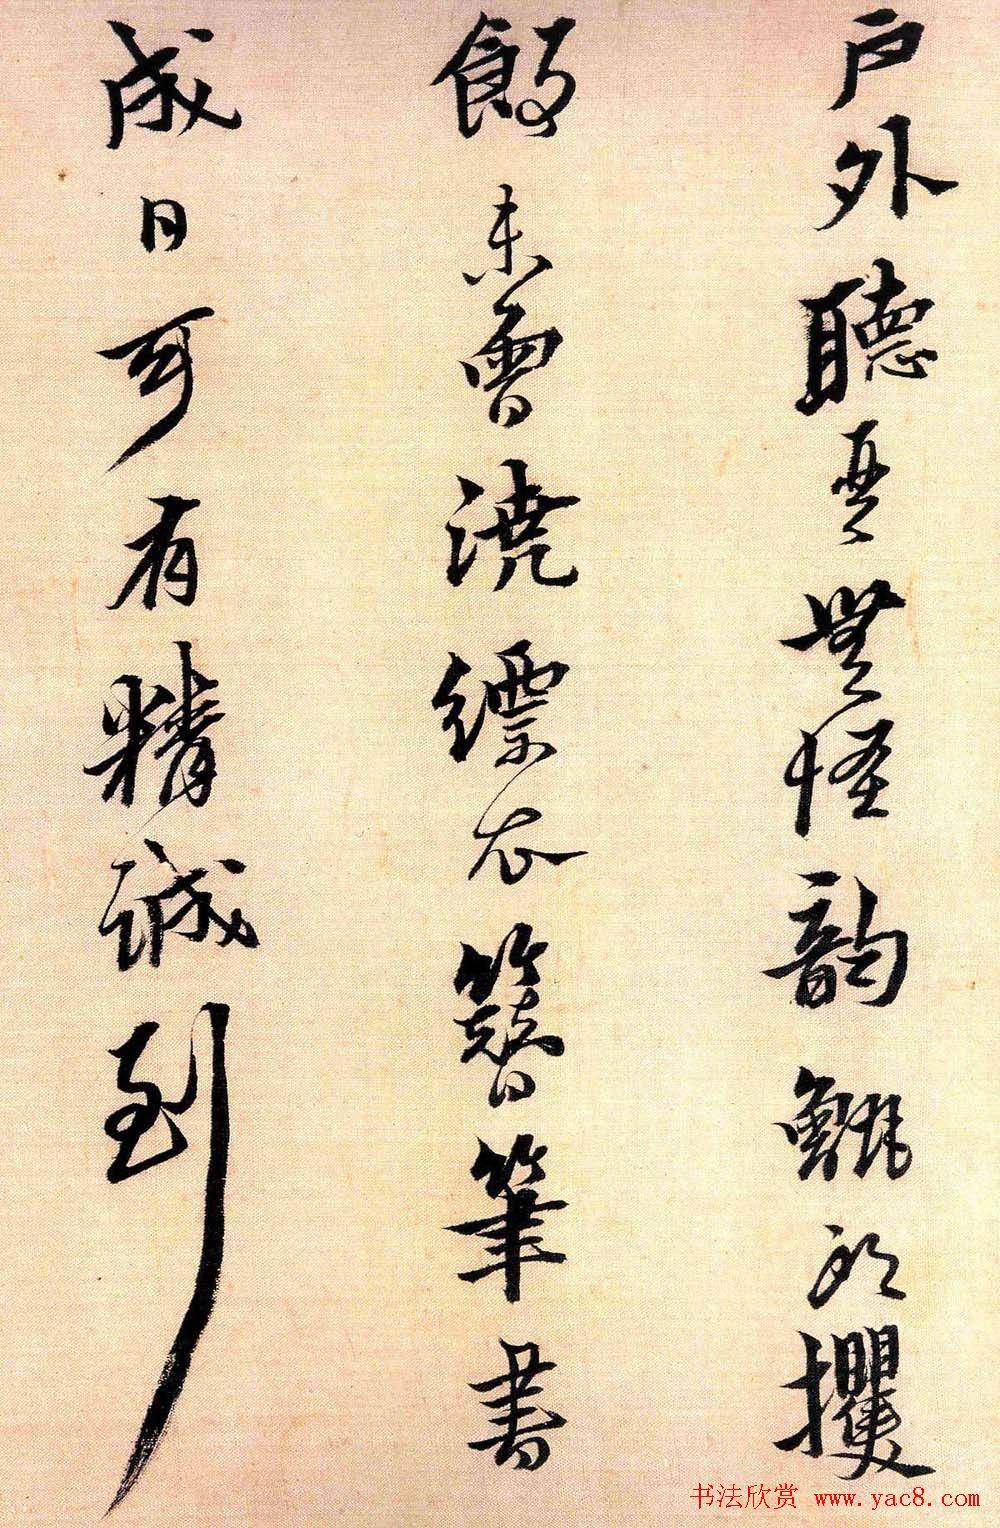 户外聽無怪韻攫
飯未曾澆縹衣簪筆書
成日可有精誠到
书法欣赏 www.yac8.com